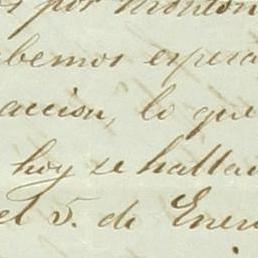 s por monton
abemos espera
accion, lo que
hoy se hallan
el 5. de Enero